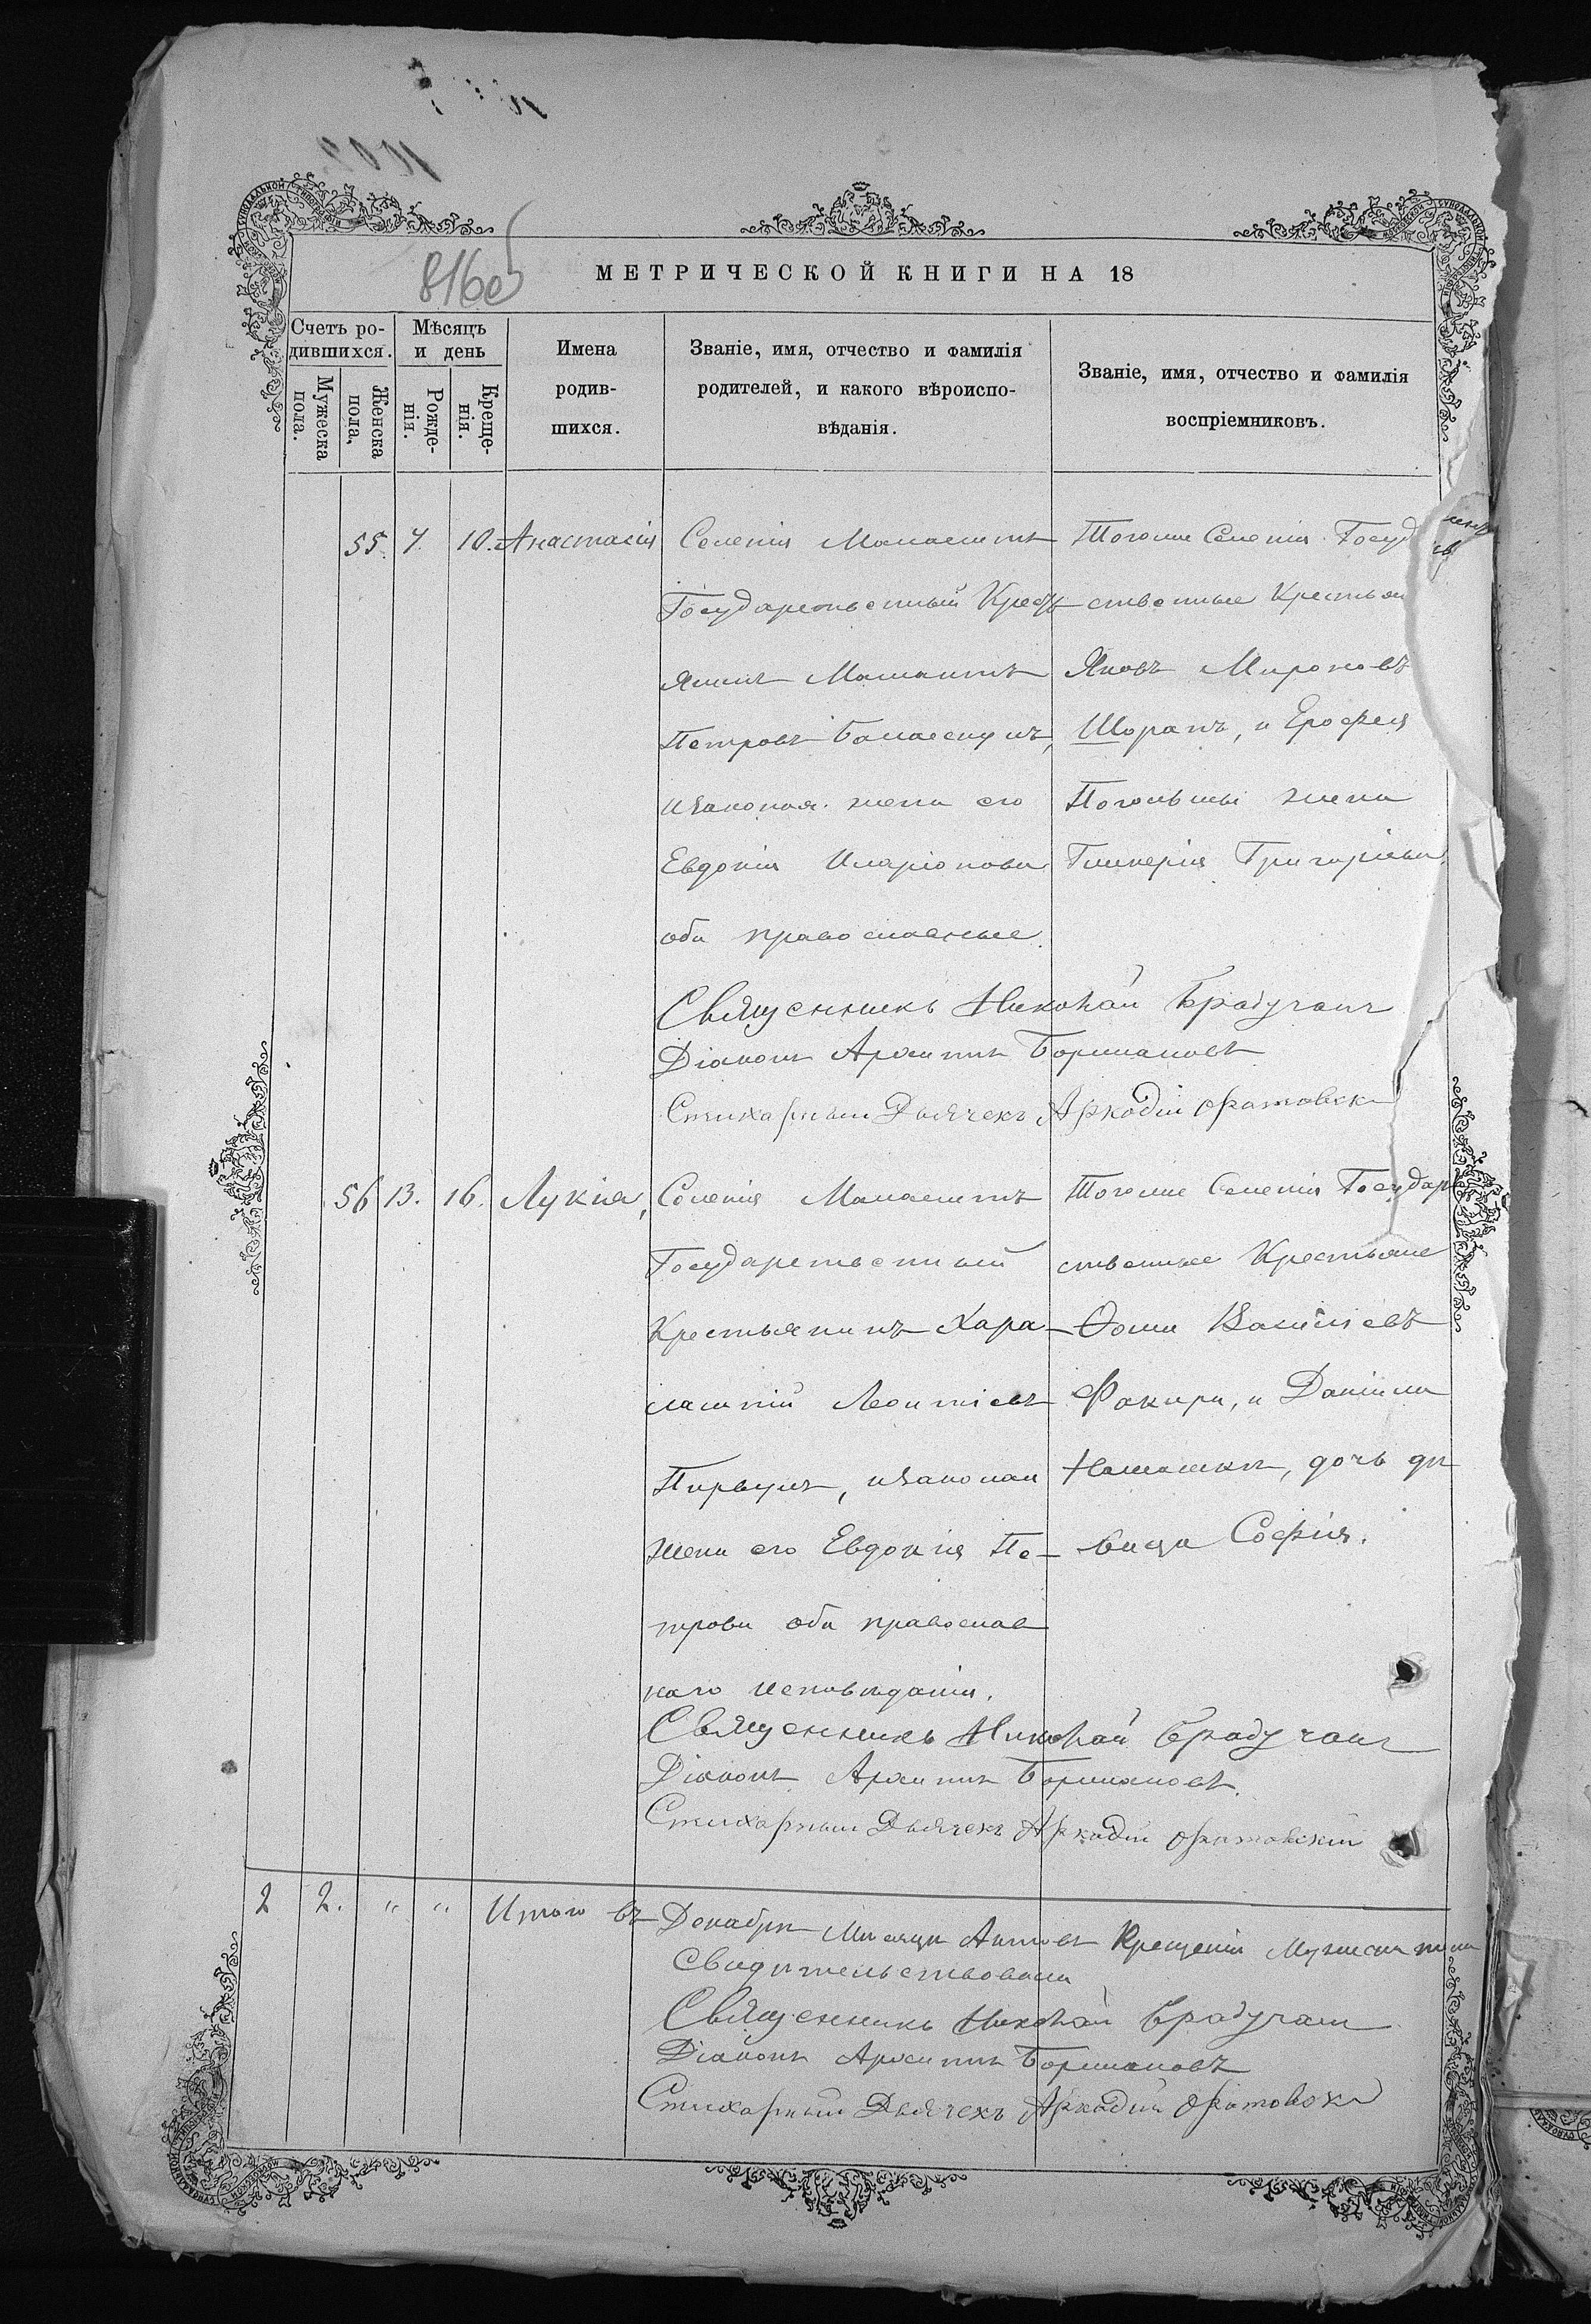 816 об
МЕТРИЧЕСКОЙ КНИГИ НА 18
Счетъ ро-
дившихся.
Мужеска
пола.
Женска
пола,
Мѣсяцъ
и день
Рожде-
нія.
Креще-
нія.
Имена
родив-
шихся.
Званіе, имя, отчество и фамилія
родителей, и какого вѣроиспо-
вѣданія.
Званіе, имя, отчество и фамилія
воспріемниковъ.
55. 7. 10. Анастасія
Селенія
Государственный Крестъ
янинъ
Петровъ
изаконая жена его
Евдокія Иларіонова
оба православные.
Тогоже Селенія Госуд
ственные Крестьян
Яковъ Мироновъ
Шоранъ, и Ерофея
жена
Гликерія Григоріева.
Священникъ Николай Брадучанъ
Діаконъ
Стихарный Дьячекъ Аркадій
56 13. 16. Лукія,
Селенія
Государственный
Крестьянинъ Хара-
лампій Леонтіевъ
Пырвулъ, изаконая
жена его Евдокія Пе-
трова оба православ
наго исповѣданія.
Тогоже Селенія Государ
ственные Крестьяне
Ѳома Василіевъ
Факира, и Даніила
дочь дѣ
вица Софія.
Священникъ Николай Брадучанъ
Діаконъ
Стихарный Дьячекъ Аркадій
2 2. " " Итого въ Декабрѣ Мѣсяцѣ Актовъ Крещенія Мужеска пола
Свидѣтельствовали
Священникъ Николай Брадучанъ
Діаконъ
Стихарный Дьячекъ Аркадій